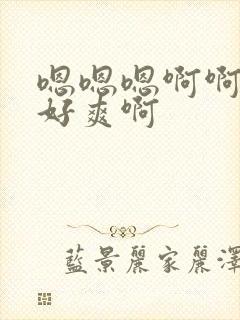 嗯嗯嗯啊啊
好爽啊
藍景麗家麗澤